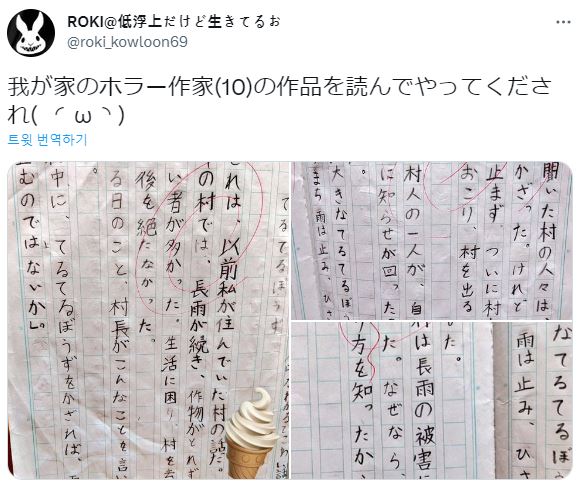 ROKI@低浮上だけど生きてるお
@roki_kowloon69
我が家のホラー作家(10)の作品を読んでやってくださ
れ( ◜ω◝ )
트윗 번역하기
てるてるぼうず
れは、以前私が住んでいた村の話だ。
の村では、長雨が続き、作物がとれず
い者が多かった。生活に困り、村を去
後を絶たなかった。
る日のこと、村長がこんなことを言い
。
中に、てるてるぼうずをかざれば、
むのではないか」。
聞いた村の人々は、
かざった。けれど
止まず、ついに村
おこり、村を出る
村人の一人が、自
に知らせが回った
。
大きなてるてるぼう
まち雨は止み、ひさ
なてるてるぼ
雨は止み、ひさ
た。
は長雨の被害に
た。なぜなら、
方を知ったか